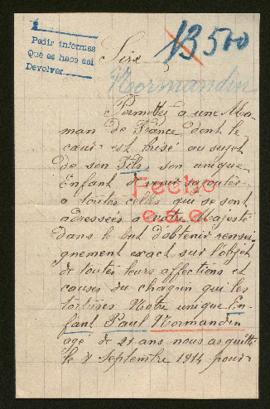 Pedir informes
Que se hace así
Devolver
Sire
13500
Normandin
Permettez à une Ma-
man de France dont le
cœur est brisé au sujet
de son Fils son unique
Enfant
à toutes celles qui se sont
adressées a votre Majesté
dans le but d'obtenir rensei-
gnement exact sur l'objet
de toutes leurs affections et
causes du chagrin qui les
tortures Notre unique En-
fant Paul Normandin
agé de 21 ans nous a quitté
le 8 Septembre 1914 pour
Fecho